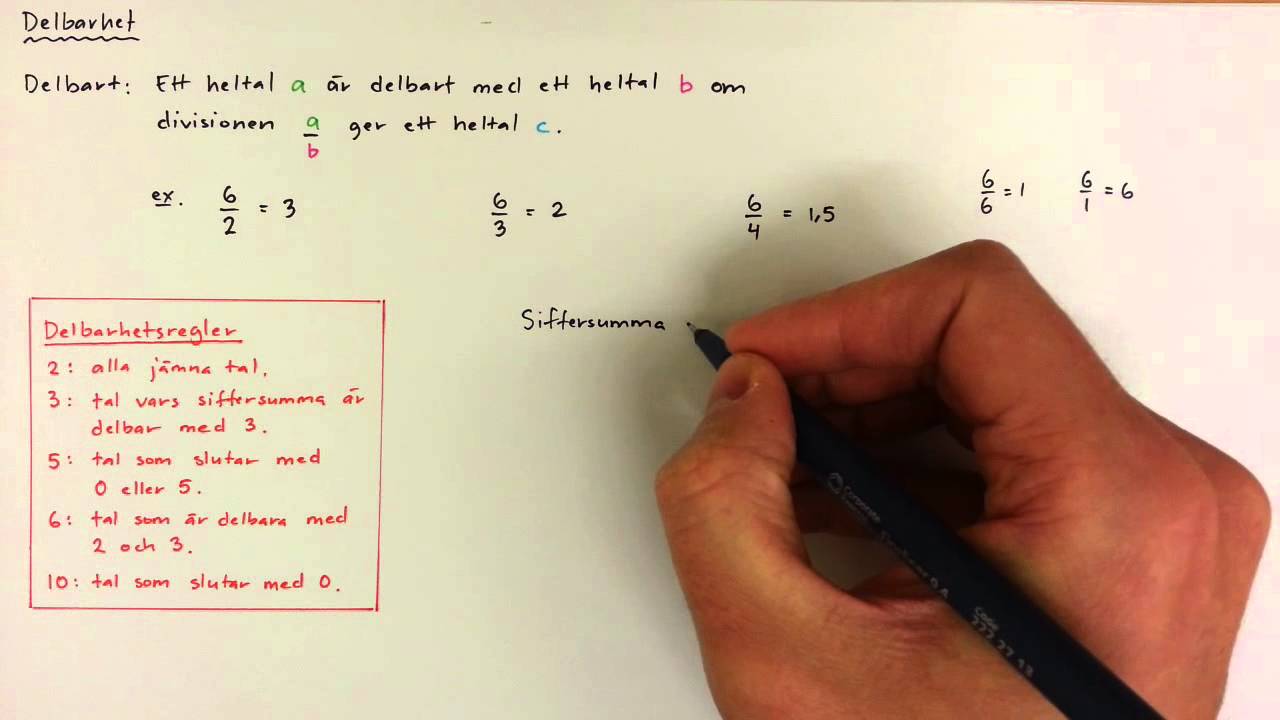 Delbarhet
Delbart: Ett heltal a är delbart med ett heltal b om
divisionen a/b ger ett heltal c.
ex. 6/2 = 3 6/3 = 2 6/4 = 1,5 6/6 = 1 6/1 = 6
Siffersumma
Delbarhetsregler
2: alla jämna tal.
3: tal vars siffersumma är
delbar med 3.
5: tal som slutar med
0 eller 5.
6: tal som är delbara med
2 och 3.
10: tal som slutar med 0.
Corporate
Code
222 27 13